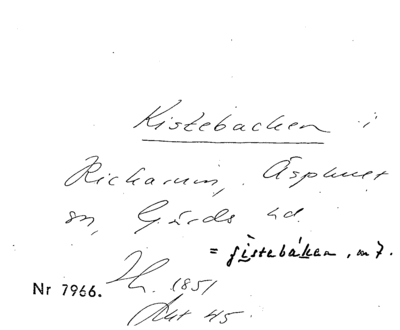 Kistebacken i
Richarum, Äsphult
sn, Gärds hd.
= fistebáken, m7.
Nr 7966. Th. 1851
Akt 45.